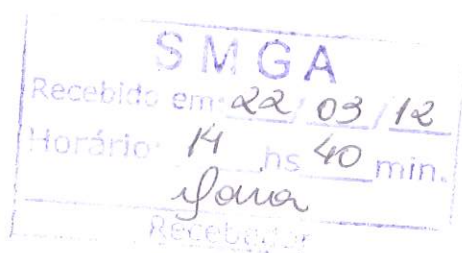 SMGA
Recebido em: 22/03/12
Horário: 14 hs 40 min.
Recebedor